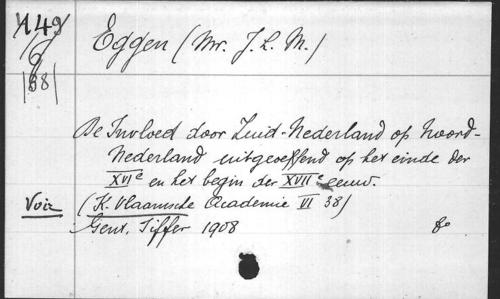 A 49
6
38
Eggen (Mr. J. L. M.)
De Invloed door Zuid-Nederland op Noord-
Nederland uitgeoeffend op het einde der
XVIe en het begin der XVIIe eeuw.
Voir (K. Vlaamsche Academie VI 38)
Gent, Siffer 1908 8o